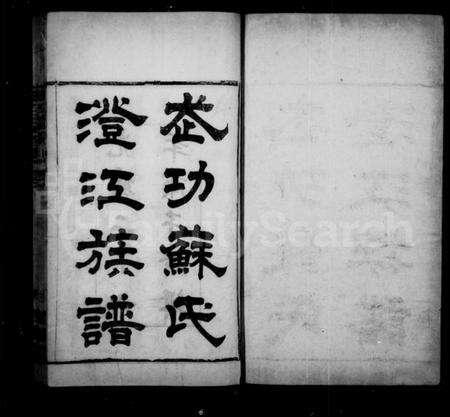 武功蘇氏
澄江族譜
FamilySearch